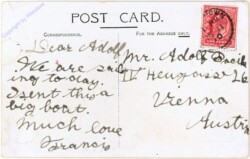 POST CARD.
CORRESPONDENCE.
FOR THE ADDRESS ONLY.
Dear Adolf
We are sail
ing to day.
I sent this a
big boat.
Much love
Francis
Mr. Adolf
IV
Vienna
Austri